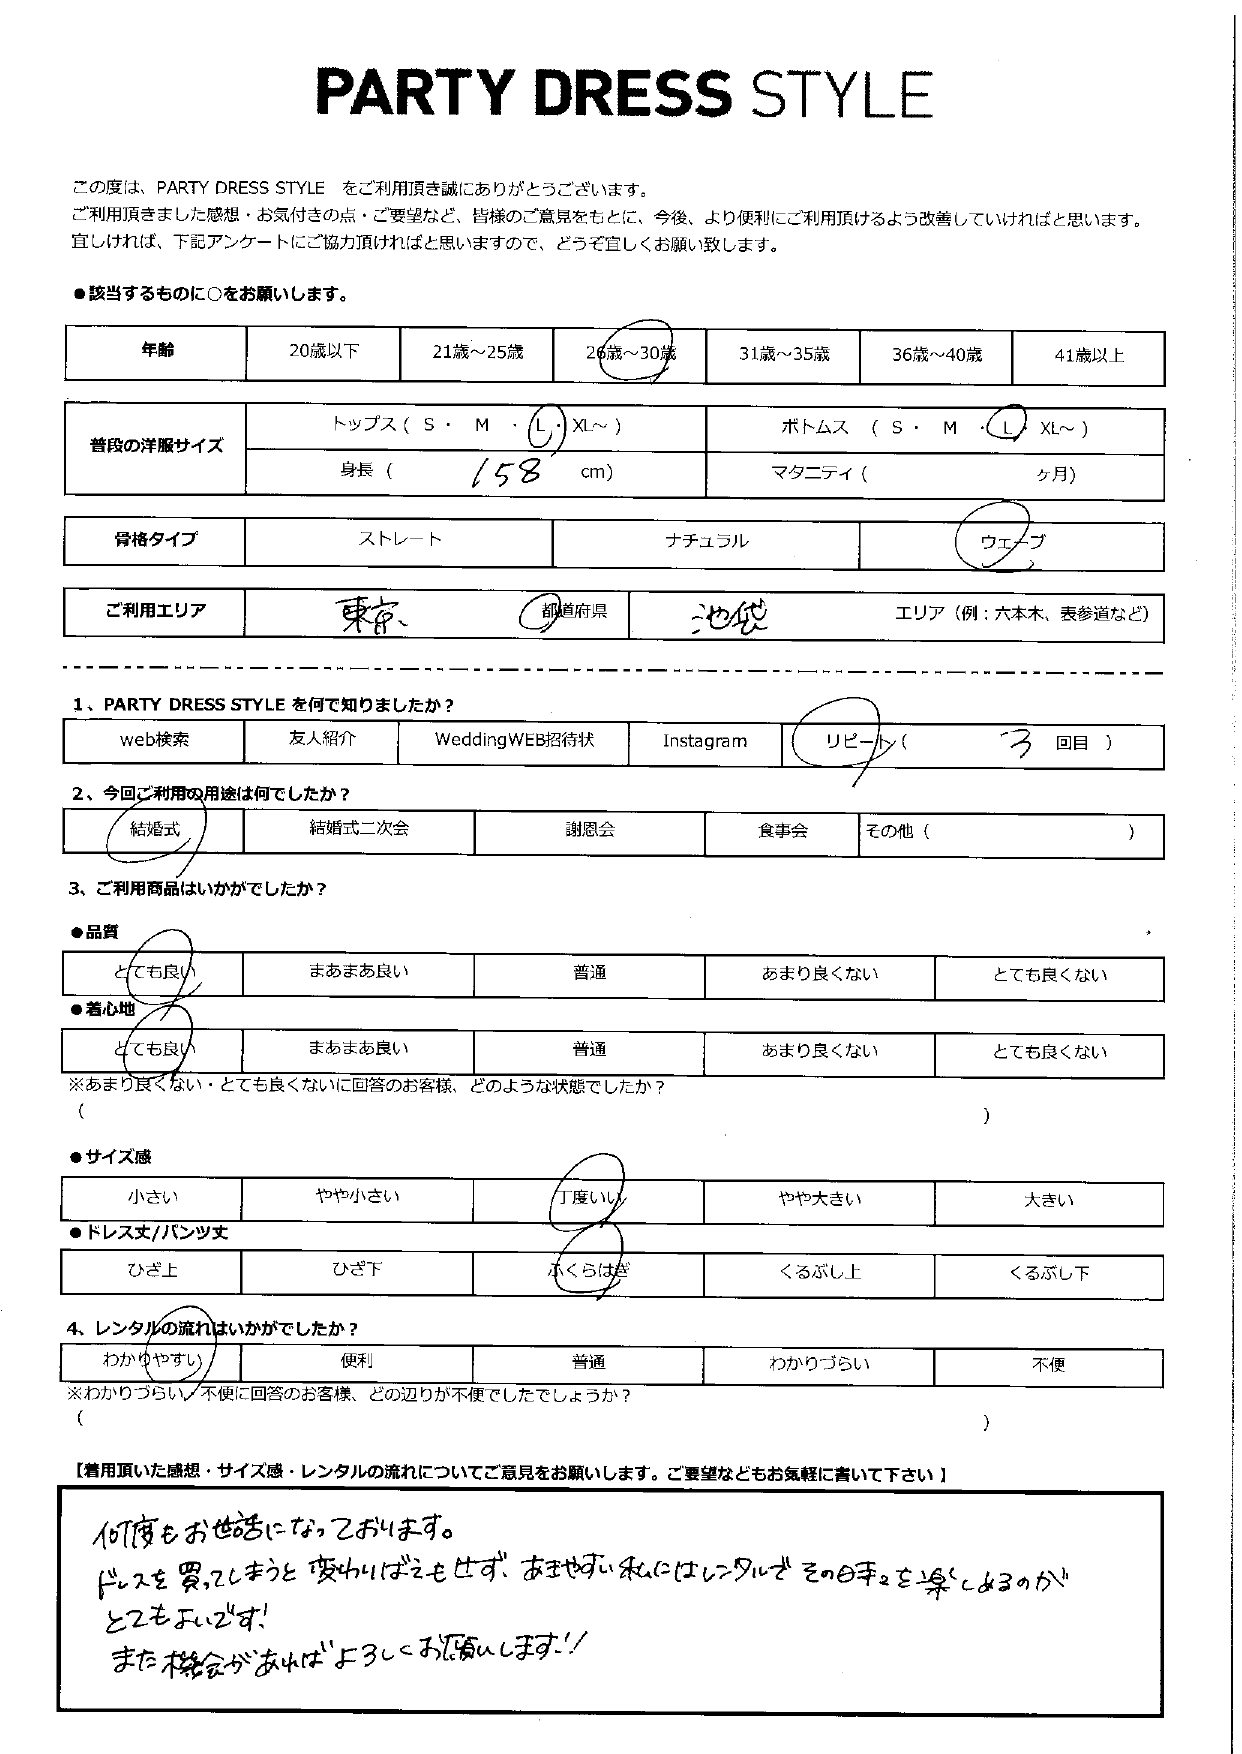 PARTY DRESS STYLE
この度は、PARTY DRESS STYLE をご利用頂き誠にありがとうございます。
ご利用頂きました感想・お気付きの点・ご要望など、皆様のご意見をもとに、今後、より便利にご利用頂けるよう改善していければと思います。
宜しければ、下記アンケートにご協力頂ければと思いますので、どうぞ宜しくお願い致します。
●該当するものに○をお願いします。
年齢 20歳以下 21歳～25歳 26歳～30歳 31歳～35歳 36歳～40歳 41歳以上
普段の洋服サイズ トップス ( S ・ M ・ L ・ XL～ ) ボトムス ( S ・ M ・ L XL～ )
身長 ( 158 cm) マタニティ ( ヶ月)
骨格タイプ ストレート ナチュラル ウェーブ
ご利用エリア 東京 都道府県 池袋 エリア（例：六本木、表参道など）
1、PARTY DRESS STYLE を何で知りましたか？
web検索 友人紹介 WeddingWEB招待状 Instagram リピート ( 3 回目 )
2、今回ご利用の用途は何でしたか？
結婚式 結婚式二次会 謝恩会 食事会 その他 ( )
3、ご利用商品はいかがでしたか？
●品質
とても良い まあまあ良い 普通 あまり良くない とても良くない
●着心地
とても良い まあまあ良い 普通 あまり良くない とても良くない
※あまり良くない・とても良くないに回答のお客様、どのような状態でしたか？
( )
●サイズ感
小さい やや小さい 丁度いい やや大きい 大きい
●ドレス丈/パンツ丈
ひざ上 ひざ下 ふくらはぎ くるぶし上 くるぶし下
4、レンタルの流れはいかがでしたか？
わかりやすい 便利 普通 わかりづらい 不便
※わかりづらい／不便に回答のお客様、どの辺りが不便でしたでしょうか？
( )
【着用頂いた感想・サイズ感・レンタルの流れについてご意見をお願いします。ご要望などもお気軽に書いて下さい 】
何度もお世話になっております。
ドレスを買ってしまうと変わりばえもせず、あきやすい私にはレンタルでその日毎を楽しめるのが
とてもよいです!
また機会があればよろしくお願いします!!